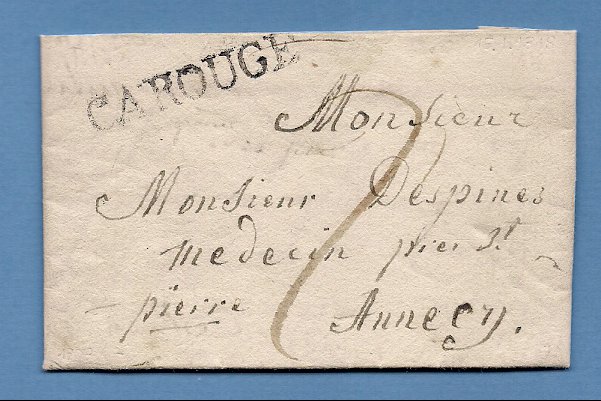 CAROUGE
Monsieur
Monsieur Despines
medecin pres St
pierre
Annecy.